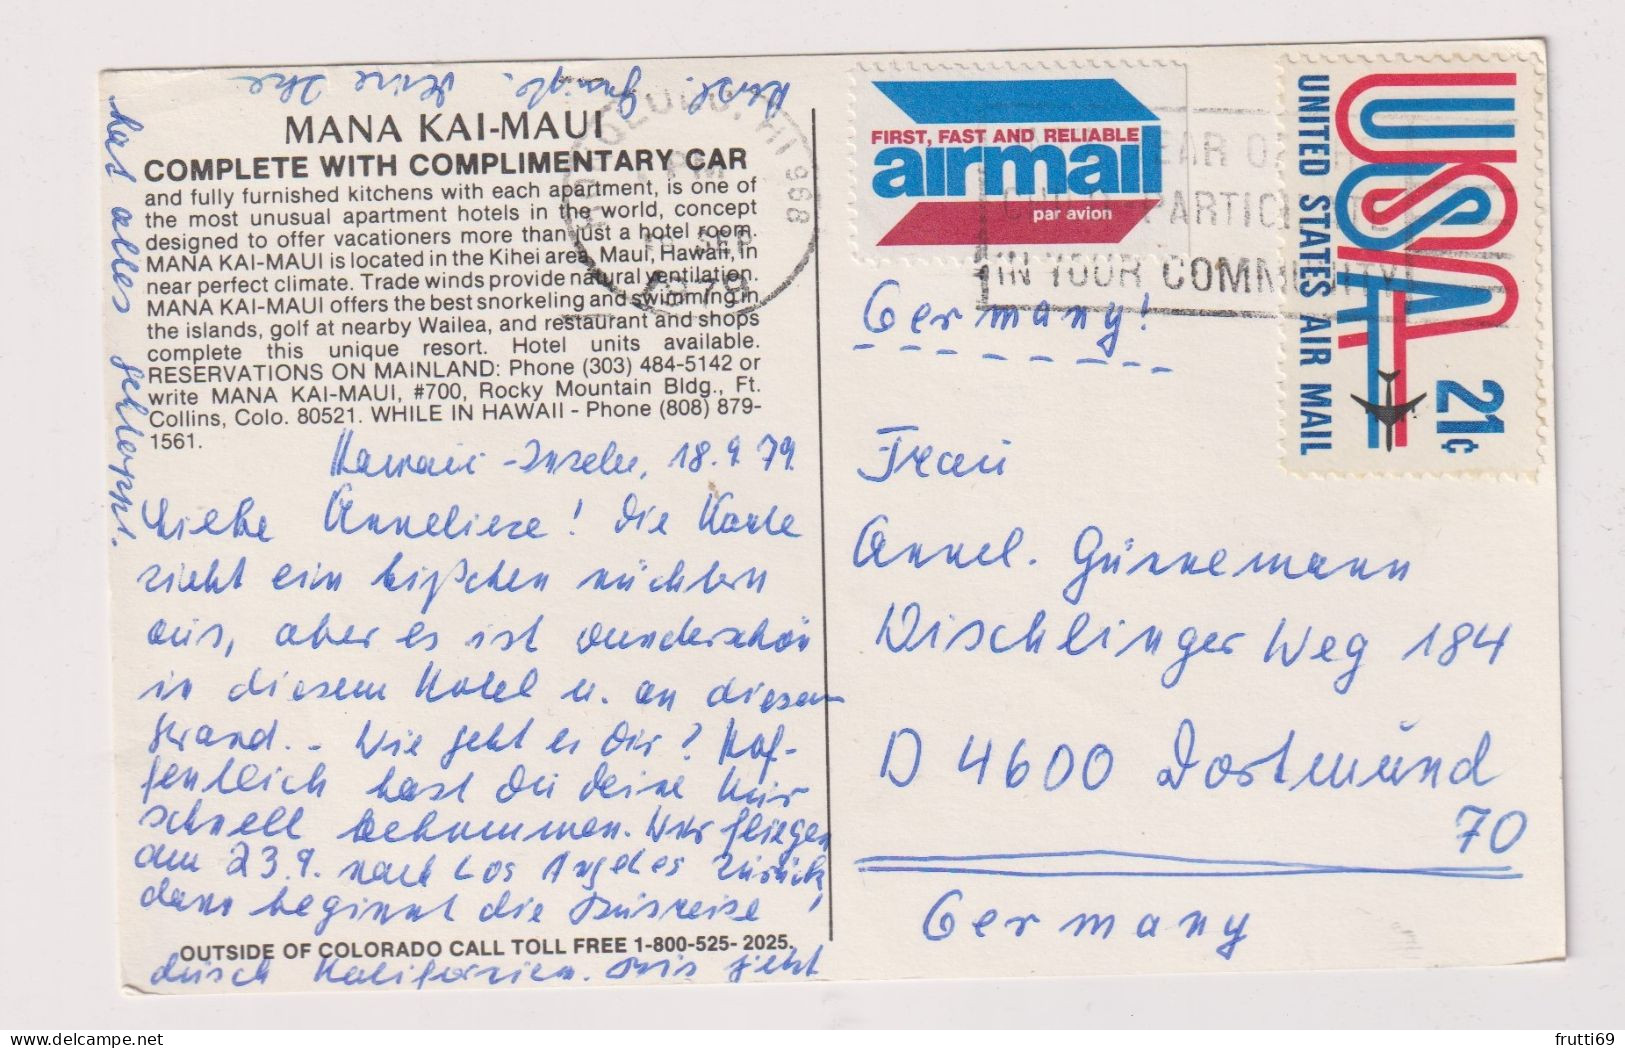 MANA KAI-MAUI
COMPLETE WITH COMPLIMENTARY CAR
and fully furnished kitchens with each apartment, is one of
the most unusual apartment hotels in the world, concept
designed to offer vacationers more than just a hotel room.
MANA KAI-MAUI is located in the Kihei area, Maui, Hawaii, in
near perfect climate. Trade winds provide natural ventilation.
MANA KAI-MAUI offers the best snorkeling and swimming in
the islands, golf at nearby Wailea, and restaurant and shops
complete this unique resort. Hotel units available.
RESERVATIONS ON MAINLAND: Phone (303) 484-5142 or
write MANA KAI-MAUI, #700, Rocky Mountain Bldg., Ft.
Collins, Colo. 80521. WHILE IN HAWAII - Phone (808) 879-
1561.
Hawaii-Inseln, 18.9.79.
Liebe Anneliese! Die Karte
sieht ein bißchen nüchtern
aus, aber es ist wunderschön
in diesem Hotel u. an diesem
Strand. - Wie geht es Dir? Hof-
fentlich hast Du deine Kur
schnell bekommen. Wir fliegen
am 23.9. nach Los Angeles zurück,
dann beginnt die Busreise
OUTSIDE OF COLORADO CALL TOLL FREE 1-800-525-2025.
durch Kalifornien. Bis jetzt
hat alles geklappt.
Herzl. Grüße, Deine
HONOLULU, HI 968
PM
SEP
1979
FIRST, FAST AND RELIABLE
airmail
par avion
YEAR OF
CHILD-PARTICI
IN YOUR COMMUNITY
USA
21¢
UNITED STATES AIR MAIL
Germany!
Frau
Annel. Günnemann
Wischlinger Weg 184
D 4600 Dortmund
70
Germany
frutti69